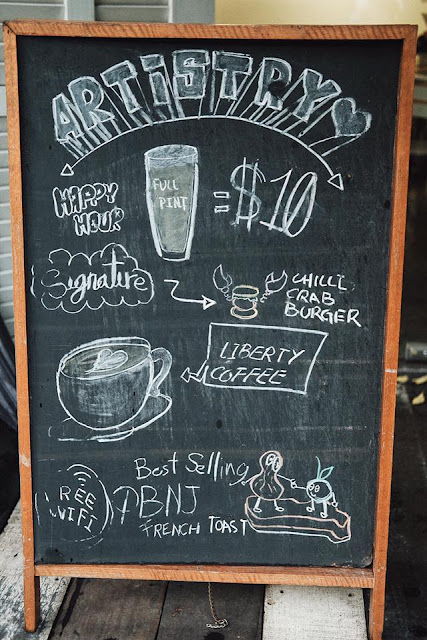 ARTISTRY
HAPPY
HOUR
FULL
PINT
= $10
Signature
CHILLI
CRAB
BURGER
LIBERTY
COFFEE
FREE
WIFI
Best Selling
PBNJ
FRENCH TOAST